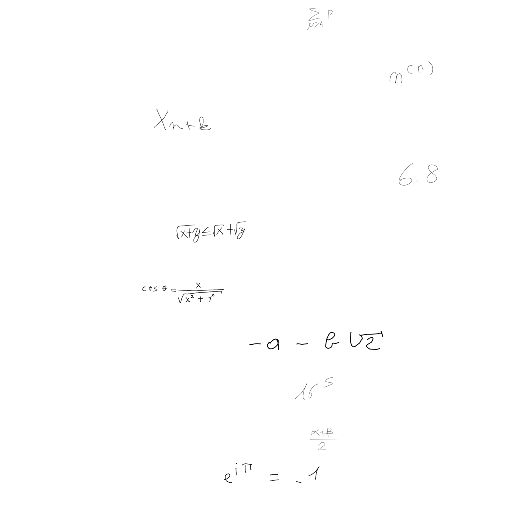 m^{(n)}
X_{n+k}
6.8
√(x+y) ≤ √x + √y
cos θ = x/√(x² + y²)
-a - b√2
16^5
(α+β)/2
e^{iπ} = -1